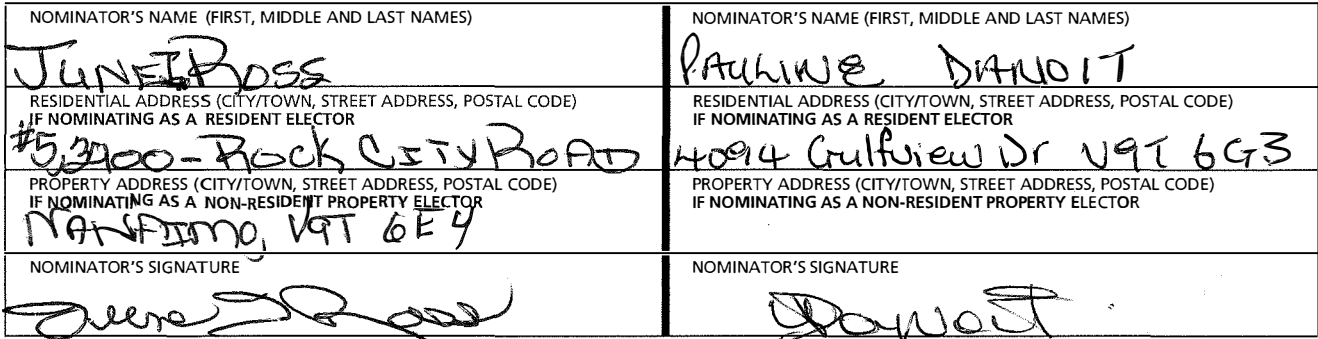 NOMINATOR'S NAME (FIRST, MIDDLE AND LAST NAMES)
JUNE I ROSS
RESIDENTIAL ADDRESS (CITY/TOWN, STREET ADDRESS, POSTAL CODE)
IF NOMINATING AS A RESIDENT ELECTOR
ROCK CITY ROAD
PROPERTY ADDRESS (CITY/TOWN, STREET ADDRESS, POSTAL CODE)
IF NOMINATING AS A NON-RESIDENT PROPERTY ELECTOR
NANAIMO, V9T 6E4
NOMINATOR'S SIGNATURE
June I Ross
NOMINATOR'S NAME (FIRST, MIDDLE AND LAST NAMES)
PAULINE
RESIDENTIAL ADDRESS (CITY/TOWN, STREET ADDRESS, POSTAL CODE)
IF NOMINATING AS A RESIDENT ELECTOR
4094 Gulfview Dr V9T 6G3
PROPERTY ADDRESS (CITY/TOWN, STREET ADDRESS, POSTAL CODE)
IF NOMINATING AS A NON-RESIDENT PROPERTY ELECTOR
NOMINATOR'S SIGNATURE